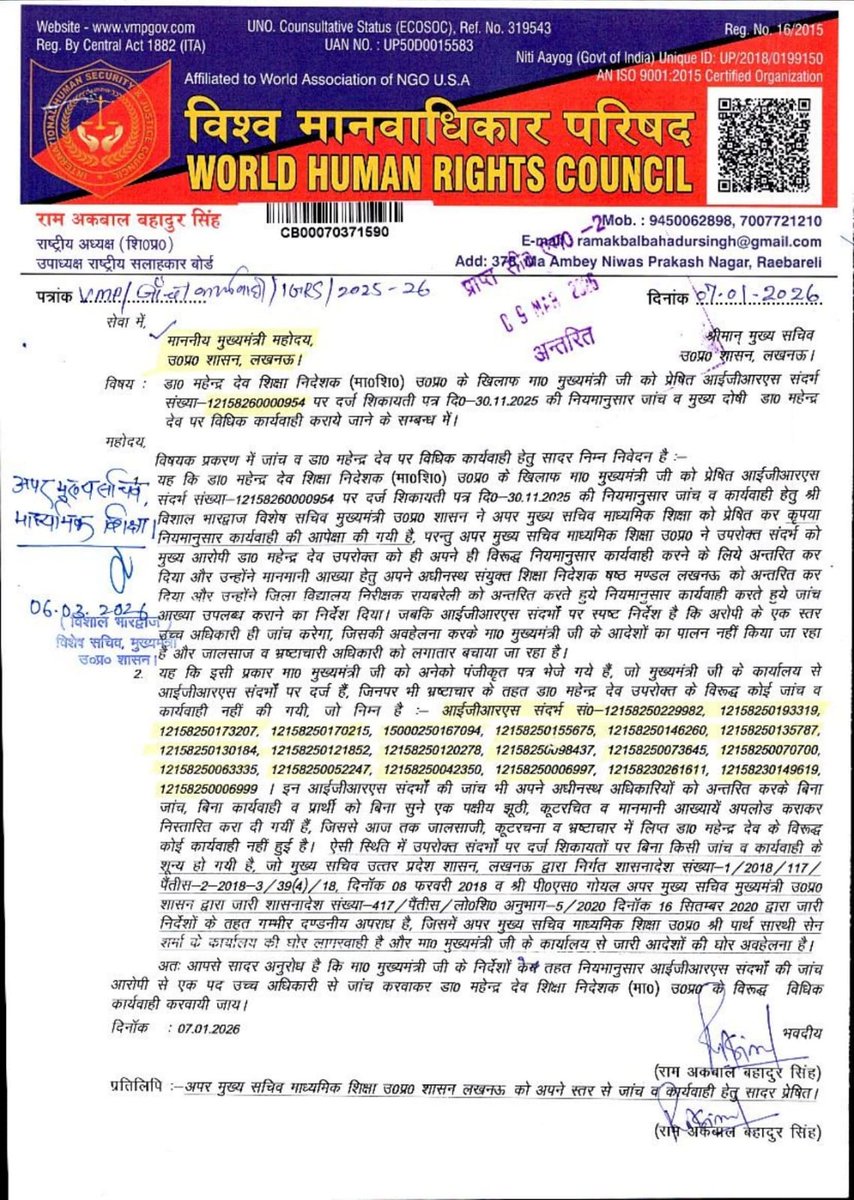 Website - www.vmpgov.com
Reg. By Central Act 1882 (ITA)
UNO. Counsultative Status (ECOSOC), Ref. No. 319543
UAN NO. : UP50D0015583
Reg. No. 16/2015
Niti Aayog (Govt of India) Unique ID: UP/2018/0199150
AN ISO 9001:2015 Certified Organization
Affiliated to World Association of NGO U.S.A
INTERNATIONAL HUMAN SECURITY & JUSTICE COUNCIL
विश्व मानवाधिकार परिषद
WORLD HUMAN RIGHTS COUNCIL
राम अकबाल बहादुर सिंह
राष्ट्रीय अध्यक्ष (शि०प्र०)
उपाध्यक्ष राष्ट्रीय सलाहकार बोर्ड
CB00070371590
Mob. : 9450062898, 7007721210
E-mail : ramakbalbahadursingh@gmail.com
Add: 378, Ma Ambey Niwas Prakash Nagar, Raebareli
प्राप्त
09 MAR 2026
अन्तरित
पत्रांक VMP/जाँच/कार्यवाही/IGRS/2025-26
दिनांक 07-01-2026
सेवा में,
माननीय मुख्यमंत्री महोदय,
उ०प्र० शासन, लखनऊ।
श्रीमान् मुख्य सचिव
उ०प्र० शासन, लखनऊ।
विषय : डा० महेन्द्र देव शिक्षा निदेशक (मा०शि०) उ०प्र० के खिलाफ मा० मुख्यमंत्री जी को प्रेषित आईजीआरएस संदर्भ
संख्या-12158260000954 पर दर्ज शिकायती पत्र दि०-30.11.2025 की नियमानुसार जांच व मुख्य दोषी डा० महेन्द्र
देव पर विधिक कार्यवाही कराये जाने के सम्बन्ध में।
महोदय,
विषयक प्रकरण में जांच व डा० महेन्द्र देव पर विधिक कार्यवाही हेतु सादर निम्न निवेदन है :-
यह कि डा० महेन्द्र देव शिक्षा निदेशक (मा०शि०) उ०प्र० के खिलाफ मा० मुख्यमंत्री जी को प्रेषित आईजीआरएस
संदर्भ संख्या-12158260000954 पर दर्ज शिकायती पत्र दि०-30.11.2025 की नियमानुसार जांच व कार्यवाही हेतु श्री
विशाल भारद्वाज विशेष सचिव मुख्यमंत्री उ०प्र० शासन ने अपर मुख्य सचिव माध्यमिक शिक्षा को प्रेषित कर कृपया
नियमानुसार कार्यवाही की आपेक्षा की गयी है, परन्तु अपर मुख्य सचिव माध्यमिक शिक्षा उ०प्र० ने उपरोक्त संदर्भ को
मुख्य आरोपी डा० महेन्द्र देव उपरोक्त को ही अपने ही विरूद्ध नियमानुसार कार्यवाही करने के लिये अन्तरित कर
दिया और उन्होंने मानमानी आख्या हेतु अपने अधीनस्थ संयुक्त शिक्षा निदेशक षष्ठ मण्डल लखनऊ को अन्तरित कर
दिया और उन्होंने जिला विद्यालय निरीक्षक रायबरेली को अन्तरित करते हुये नियमानुसार कार्यवाही करते हुये जांच
आख्या उपलब्ध कराने का निर्देश दिया। जबकि आईजीआरएस संदर्भो पर स्पष्ट निर्देश है कि अरोपी के एक स्तर
उच्च अधिकारी ही जांच करेगा, जिसकी अवहेलना करके मा० मुख्यमंत्री जी के आदेशों का पालन नहीं किया जा रहा
है और जालसाज व भ्रष्टाचारी अधिकारी को लगातार बचाया जा रहा है।
अपर मुख्य सचिव,
माध्यमिक शिक्षा।
06.03.2026
(विशाल भारद्वाज)
विशेष सचिव, मुख्यमंत्री
उ०प्र० शासन।
2. यह कि इसी प्रकार मा० मुख्यमंत्री जी को अनेको पंजीकृत पत्र भेजे गये हैं, जो मुख्यमंत्री जी के कार्यालय से
आईजीआरएस संदर्भो पर दर्ज हैं, जिनपर भी भ्रष्टाचार के तहत डा० महेन्द्र देव उपरोक्त के विरूद्ध कोई जांच व
कार्यवाही नहीं की गयी, जो निम्न है :- आईजीआरएस संदर्भ सं०-12158250229982, 12158250193319,
12158250173207, 12158250170215, 15000250167094, 12158250155675, 12158250146260, 12158250135787,
12158250130184, 12158250121852, 12158250120278, 12158250098437, 12158250073645, 12158250070700,
12158250063335, 12158250052247, 12158250042350, 12158250006997, 12158230261611, 12158230149619,
12158250006999 । इन आईजीआरएस संदर्भो की जांच भी अपने अधीनस्थ अधिकारियों को अन्तरित करके बिना
जांच, बिना कार्यवाही व प्रार्थी को बिना सुने एक पक्षीय झूठी, कूटरचित व मानमानी आख्यायें अपलोड कराकर
निस्तारित करा दी गयीं हैं, जिससे आज तक जालसाजी, कूटरचना व भ्रष्टाचार में लिप्त डा० महेन्द्र देव के विरूद्ध
कोई कार्यवाही नहीं हुई है। ऐसी स्थिति में उपरोक्त संदर्भो पर दर्ज शिकायतों पर बिना किसी जांच व कार्यवाही के
शून्य हो गयी है, जो मुख्य सचिव उत्तर प्रदेश शासन, लखनऊ द्वारा निर्गत शासनादेश संख्या-1/2018/117/
पैंतीस-2-2018-3/39(4)/18, दिनाँक 08 फरवरी 2018 व श्री पी०एस० गोयल अपर मुख्य सचिव मुख्यमंत्री उ०प्र०
शासन द्वारा जारी शासनादेश संख्या-417/पैंतीस/लो०शि० अनुभाग-5/2020 दिनाँक 16 सितम्बर 2020 द्वारा जारी
निर्देशों के तहत गम्भीर दण्डनीय अपराध है, जिसमें अपर मुख्य सचिव माध्यमिक शिक्षा उ०प्र० श्री पार्थ सारथी सेन
शर्मा के कार्यालय की घोर लापरवाही है और मा० मुख्यमंत्री जी के कार्यालय से जारी आदेशों की घोर अवहेलना है।
अतः आपसे सादर अनुरोध है कि मा० मुख्यमंत्री जी के निर्देशों के तहत नियमानुसार आईजीआरएस संदर्भो की जांच
आरोपी से एक पद उच्च अधिकारी से जांच करवाकर डा० महेन्द्र देव शिक्षा निदेशक (मा०) उ०प्र० के विरूद्ध विधिक
कार्यवाही करवायी जाय।
दिनाँक : 07.01.2026
भवदीय
(राम अकबाल बहादुर सिंह)
प्रतिलिपि :-अपर मुख्य सचिव माध्यमिक शिक्षा उ०प्र० शासन लखनऊ को अपने स्तर से जांच व कार्यवाही हेतु सादर प्रेषित।
(राम अकबाल बहादुर सिंह)